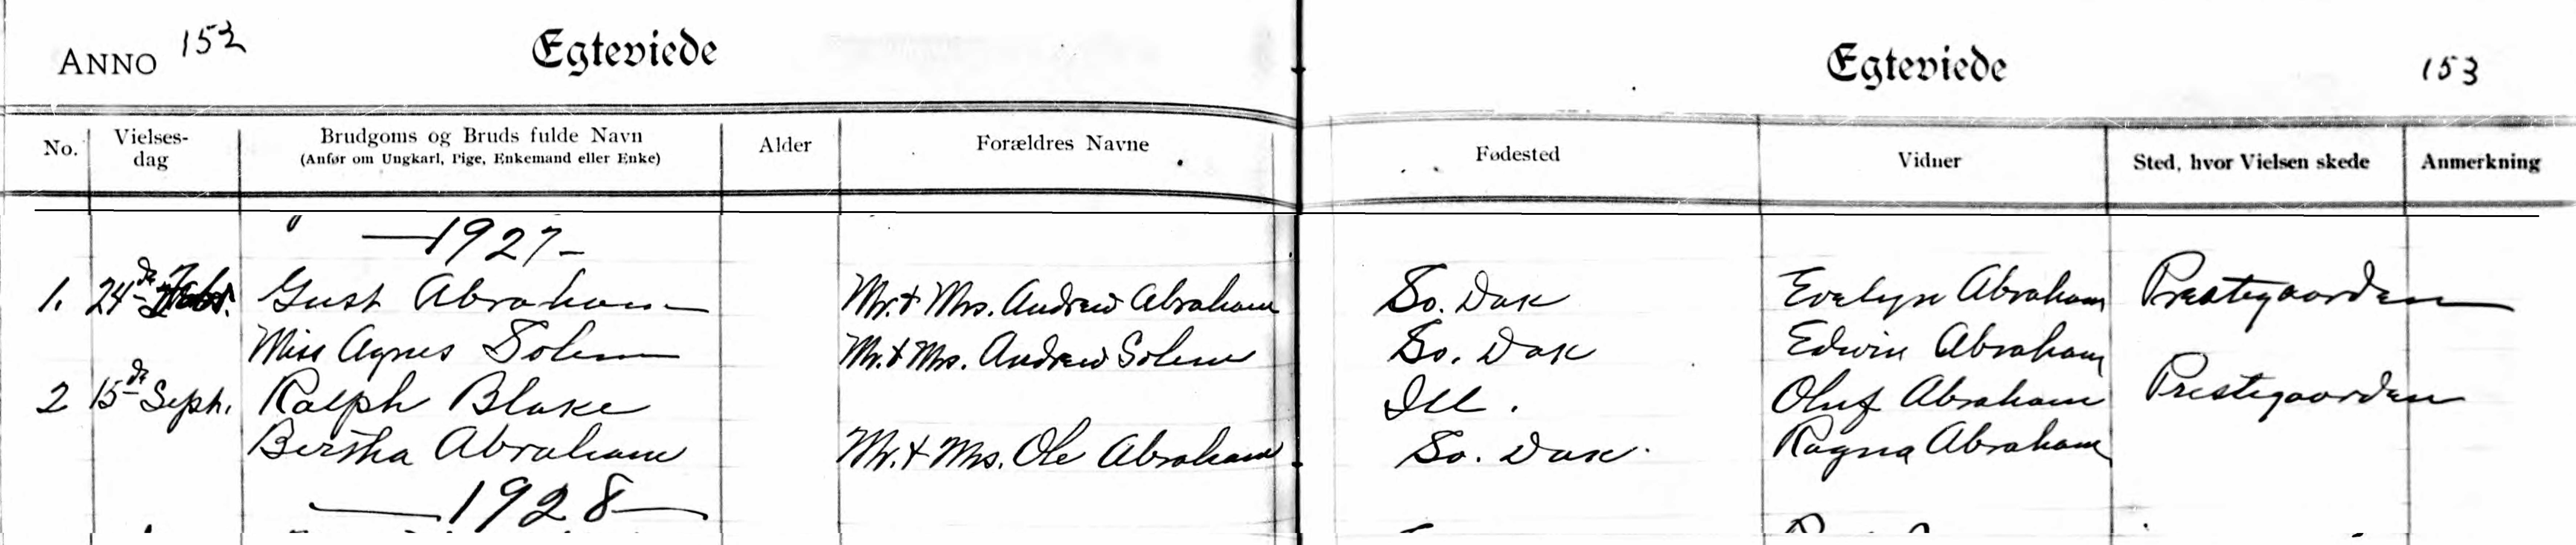 ANNO 152 Egteviede Egteviede 153
No. Vielses-dag Brudgoms og Bruds fulde Navn (Anfør om Ungkarl, Pige, Enkemand eller Enke) Alder Forældres Navne Fødested Vidner Sted, hvor Vielsen skede Anmerkning
" — 1927 –
1. 24de Febr. Gust Abraham Mr. & Mrs. Andrew Abraham So. Dak Evelyn Abraham Prestegaarden
Miss Agnes Solem Mr. & Mrs. Andrew Solem So. Dak Edwin Abraham
2 15de Sept. Ralph Blake Ill. Oluf Abraham Prestegaarden
Bertha Abraham Mr. & Mrs. Ole Abraham So. Dak. Ragna Abraham
— 1928 —